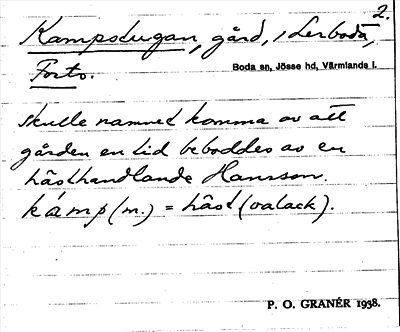 2.
Kampstugan, gård, i Lerboda,
Forts.
Boda sn, Jösse hd, Värmlands l.
skulle namnet komma av att
gården en tid beboddes av en
hästhandlande Hansson.
kámp (m.) = häst (valack).
P. O. GRANÉR 1938.